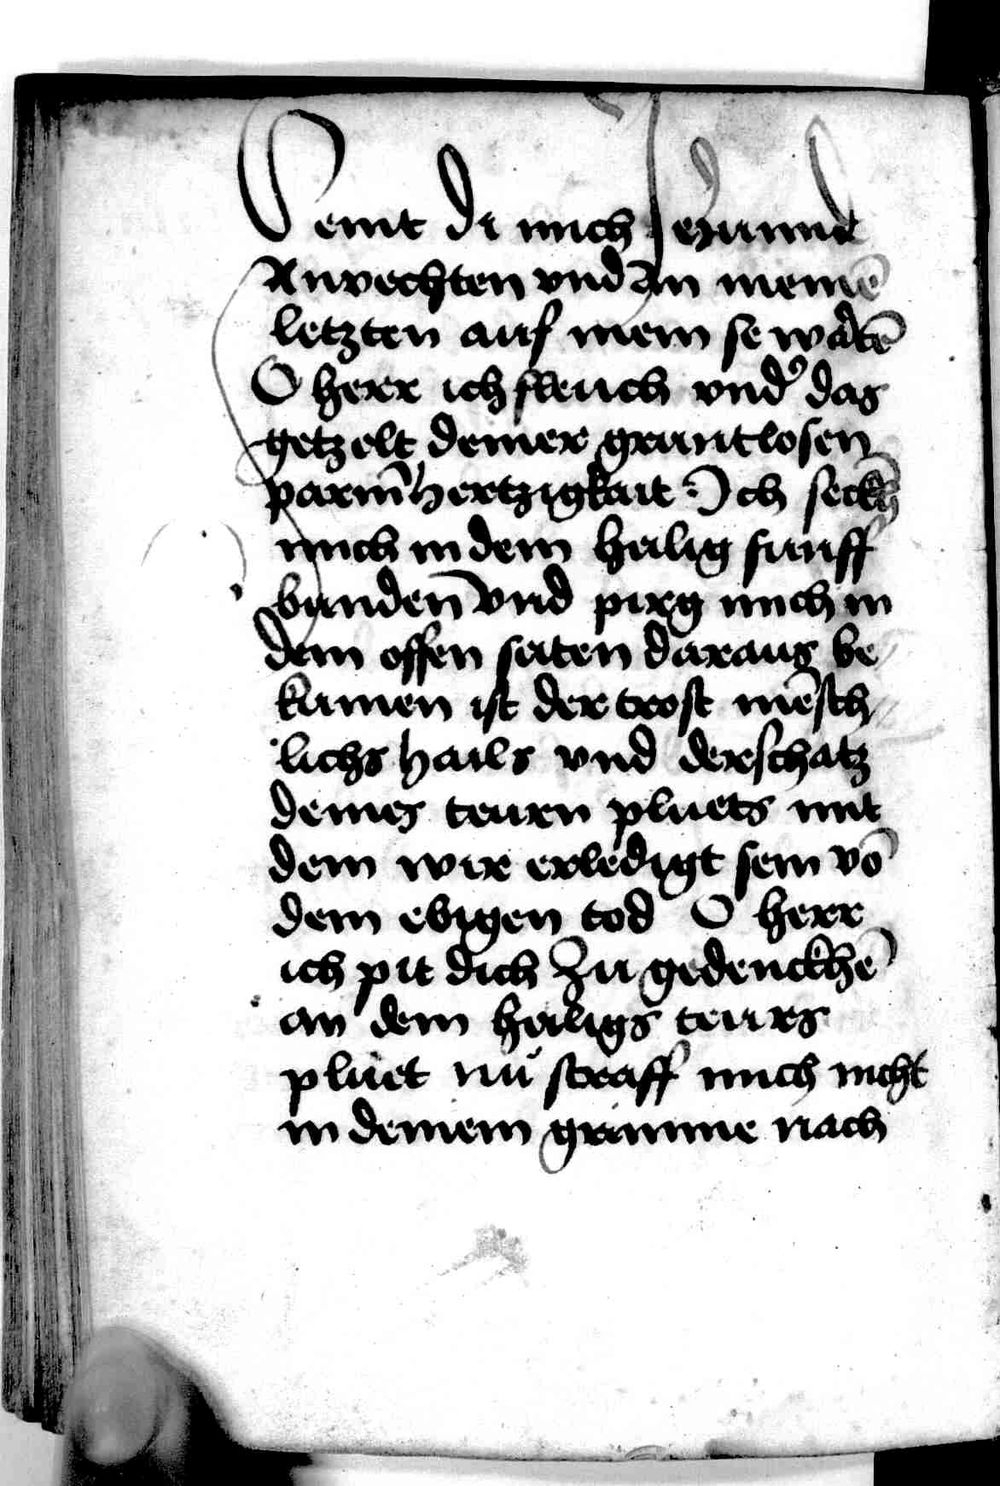 veint di mich Jezunnd
Anvechten vnd An meinē
letzten auf mein se wartē
O herr ich fleuch vnd' das
getzelt deiner gruntlosen
parmhertzigkait Ich senkh
mich in dem heilig funff
bunden vnd pirg mich in
dem offen seiten daraus be
kumen ist der trost mēsch
lichs hails vnd der schatz
deines teurn pluets mit
dem wir erledigt sein vō
dem ebigen tod O herr
ich pit dich Zu gedenckhē
an dem heiligs teurs
pluet nu straff mich nicht
in deinem grimme nach